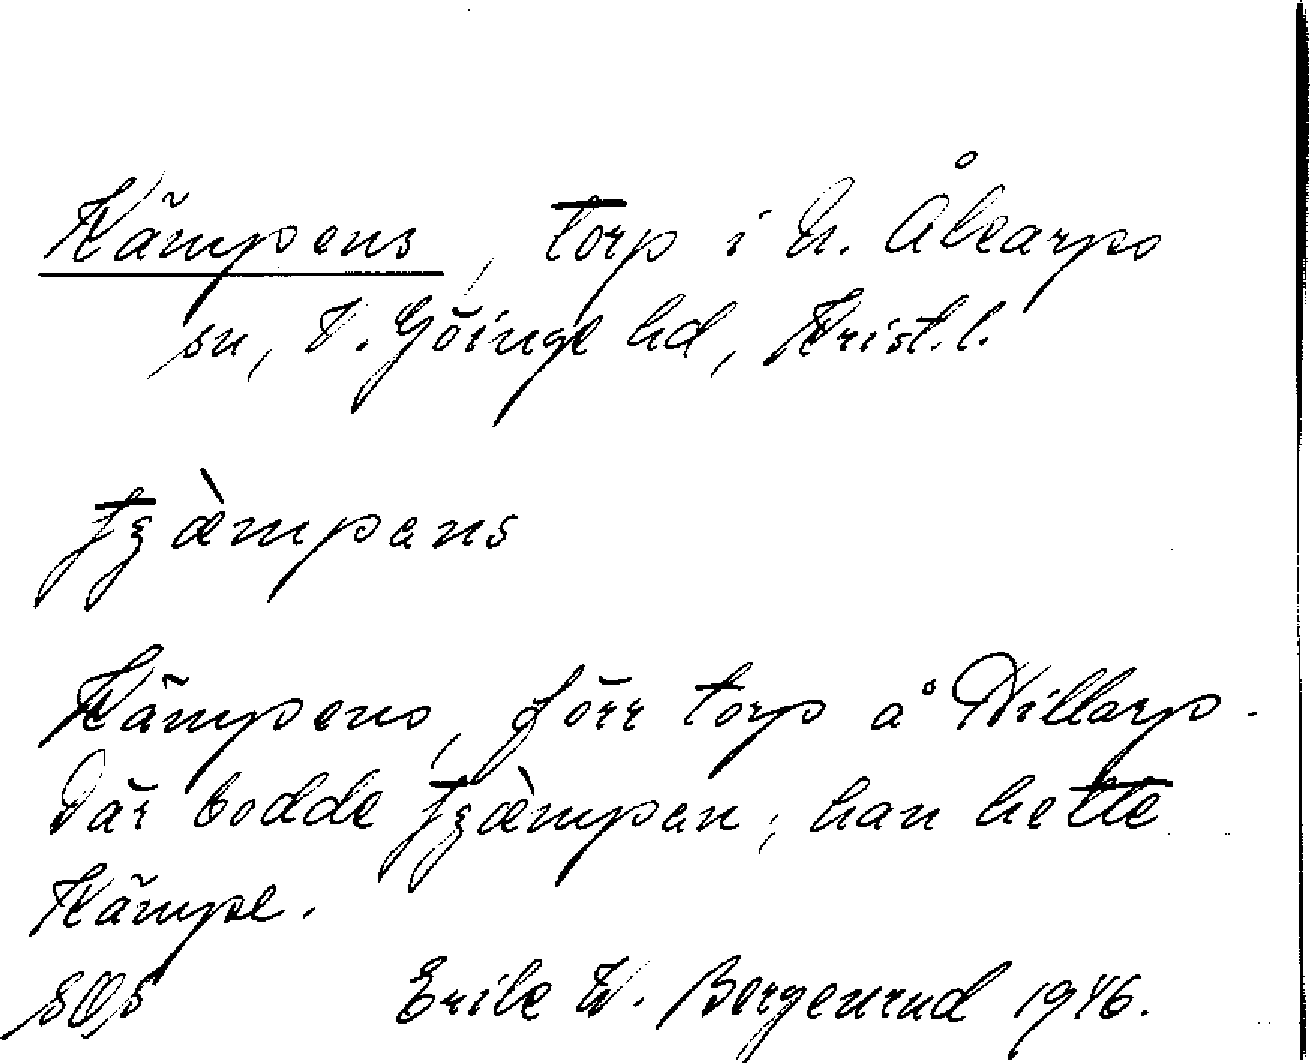 Kämpens, torp i N. Åkarps
sn, V. Göinge hd, Krist. l.
tʒæ̀mpens
Kämpens, förr torp å Dillarp.
Där bodde tʒæ̀mpen; han hette
Kämpe.
Erik W. Bergenrud 1946.